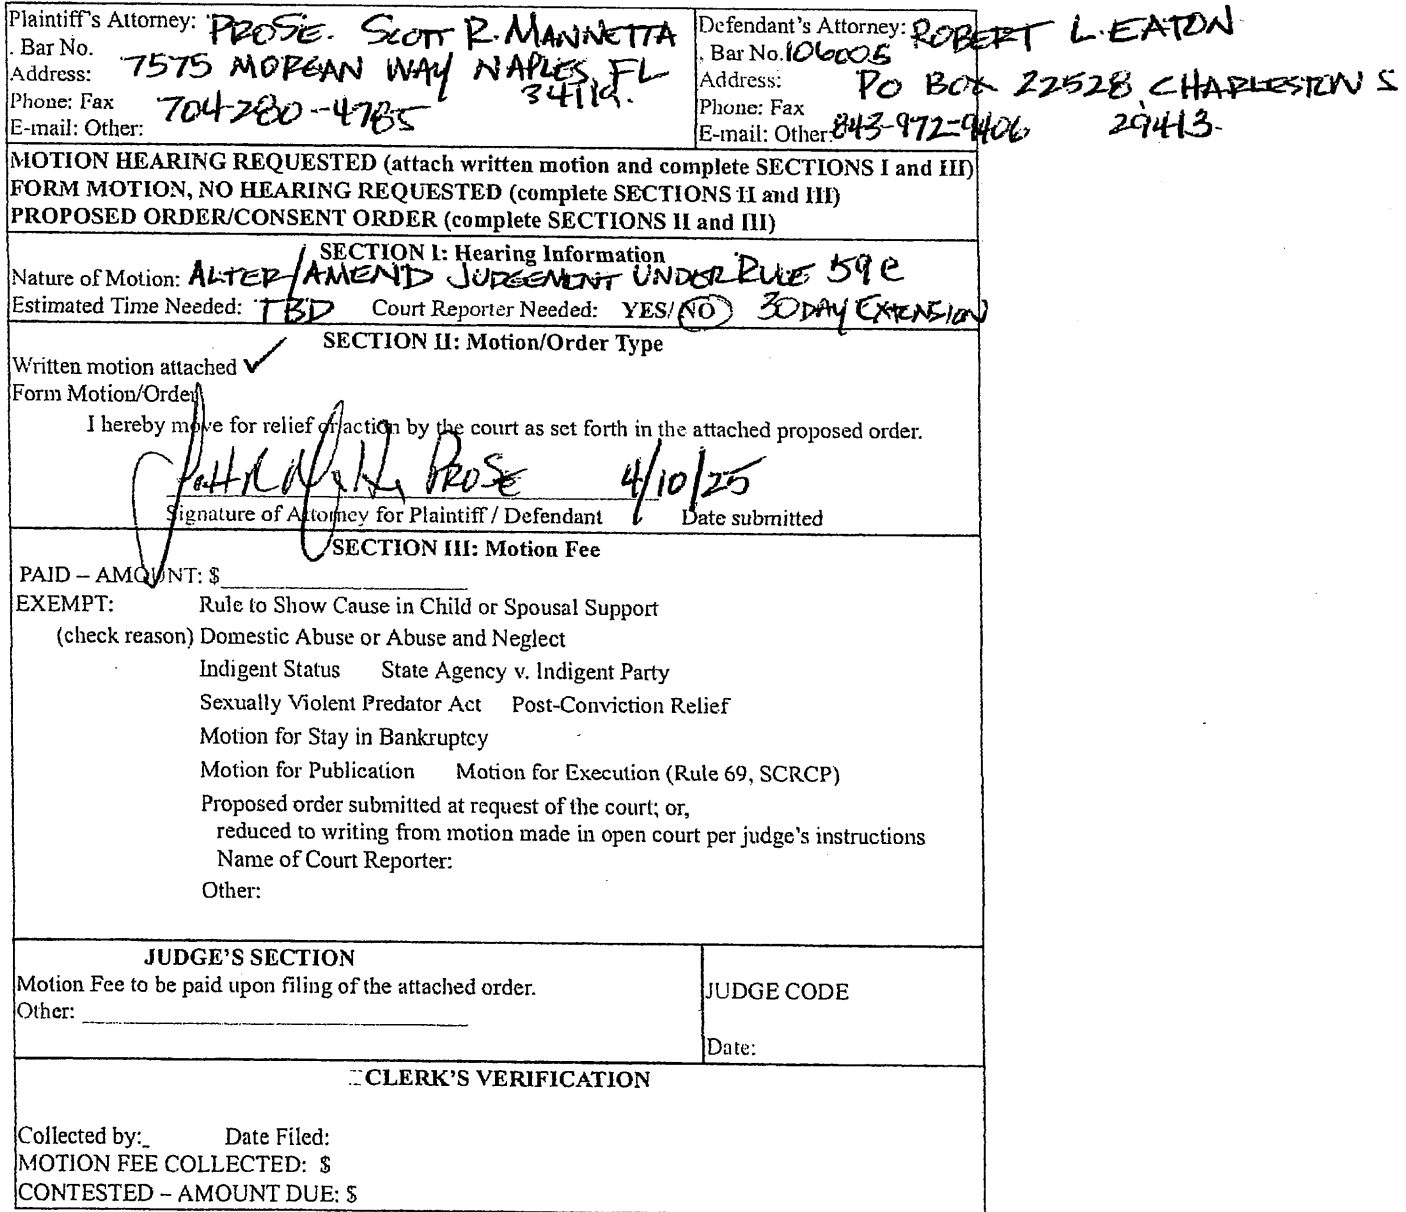 Plaintiff's Attorney: PROSE. SCOTT R. MANNETTA
. Bar No.
Address: 7575 MORGAN WAY NAPLES, FL 34119.
Phone: Fax 704-280-4785
E-mail: Other:
Defendant's Attorney: ROBERT L. EATON
, Bar No. 106005
Address: PO BOX 22528, CHARLESTON S
Phone: Fax
E-mail: Other: 843-972-9406 29413-
MOTION HEARING REQUESTED (attach written motion and complete SECTIONS I and III)
FORM MOTION, NO HEARING REQUESTED (complete SECTIONS II and III)
PROPOSED ORDER/CONSENT ORDER (complete SECTIONS II and III)
SECTION I: Hearing Information
Nature of Motion: ALTER/AMEND JUDGEMENT UNDER RULE 59e
Estimated Time Needed: TBD Court Reporter Needed: YES/NO 30 DAY EXTENSION
SECTION II: Motion/Order Type
Written motion attached ✓
Form Motion/Order
I hereby move for relief or action by the court as set forth in the attached proposed order.
PROSE 4/10/25
Signature of Attorney for Plaintiff / Defendant Date submitted
SECTION III: Motion Fee
PAID – AMOUNT: $
EXEMPT: Rule to Show Cause in Child or Spousal Support
(check reason) Domestic Abuse or Abuse and Neglect
Indigent Status State Agency v. Indigent Party
Sexually Violent Predator Act Post-Conviction Relief
Motion for Stay in Bankruptcy
Motion for Publication Motion for Execution (Rule 69, SCRCP)
Proposed order submitted at request of the court; or,
reduced to writing from motion made in open court per judge's instructions
Name of Court Reporter:
Other:
JUDGE'S SECTION
Motion Fee to be paid upon filing of the attached order.
Other:
JUDGE CODE
Date:
CLERK'S VERIFICATION
Collected by: Date Filed:
MOTION FEE COLLECTED: $
CONTESTED – AMOUNT DUE: $